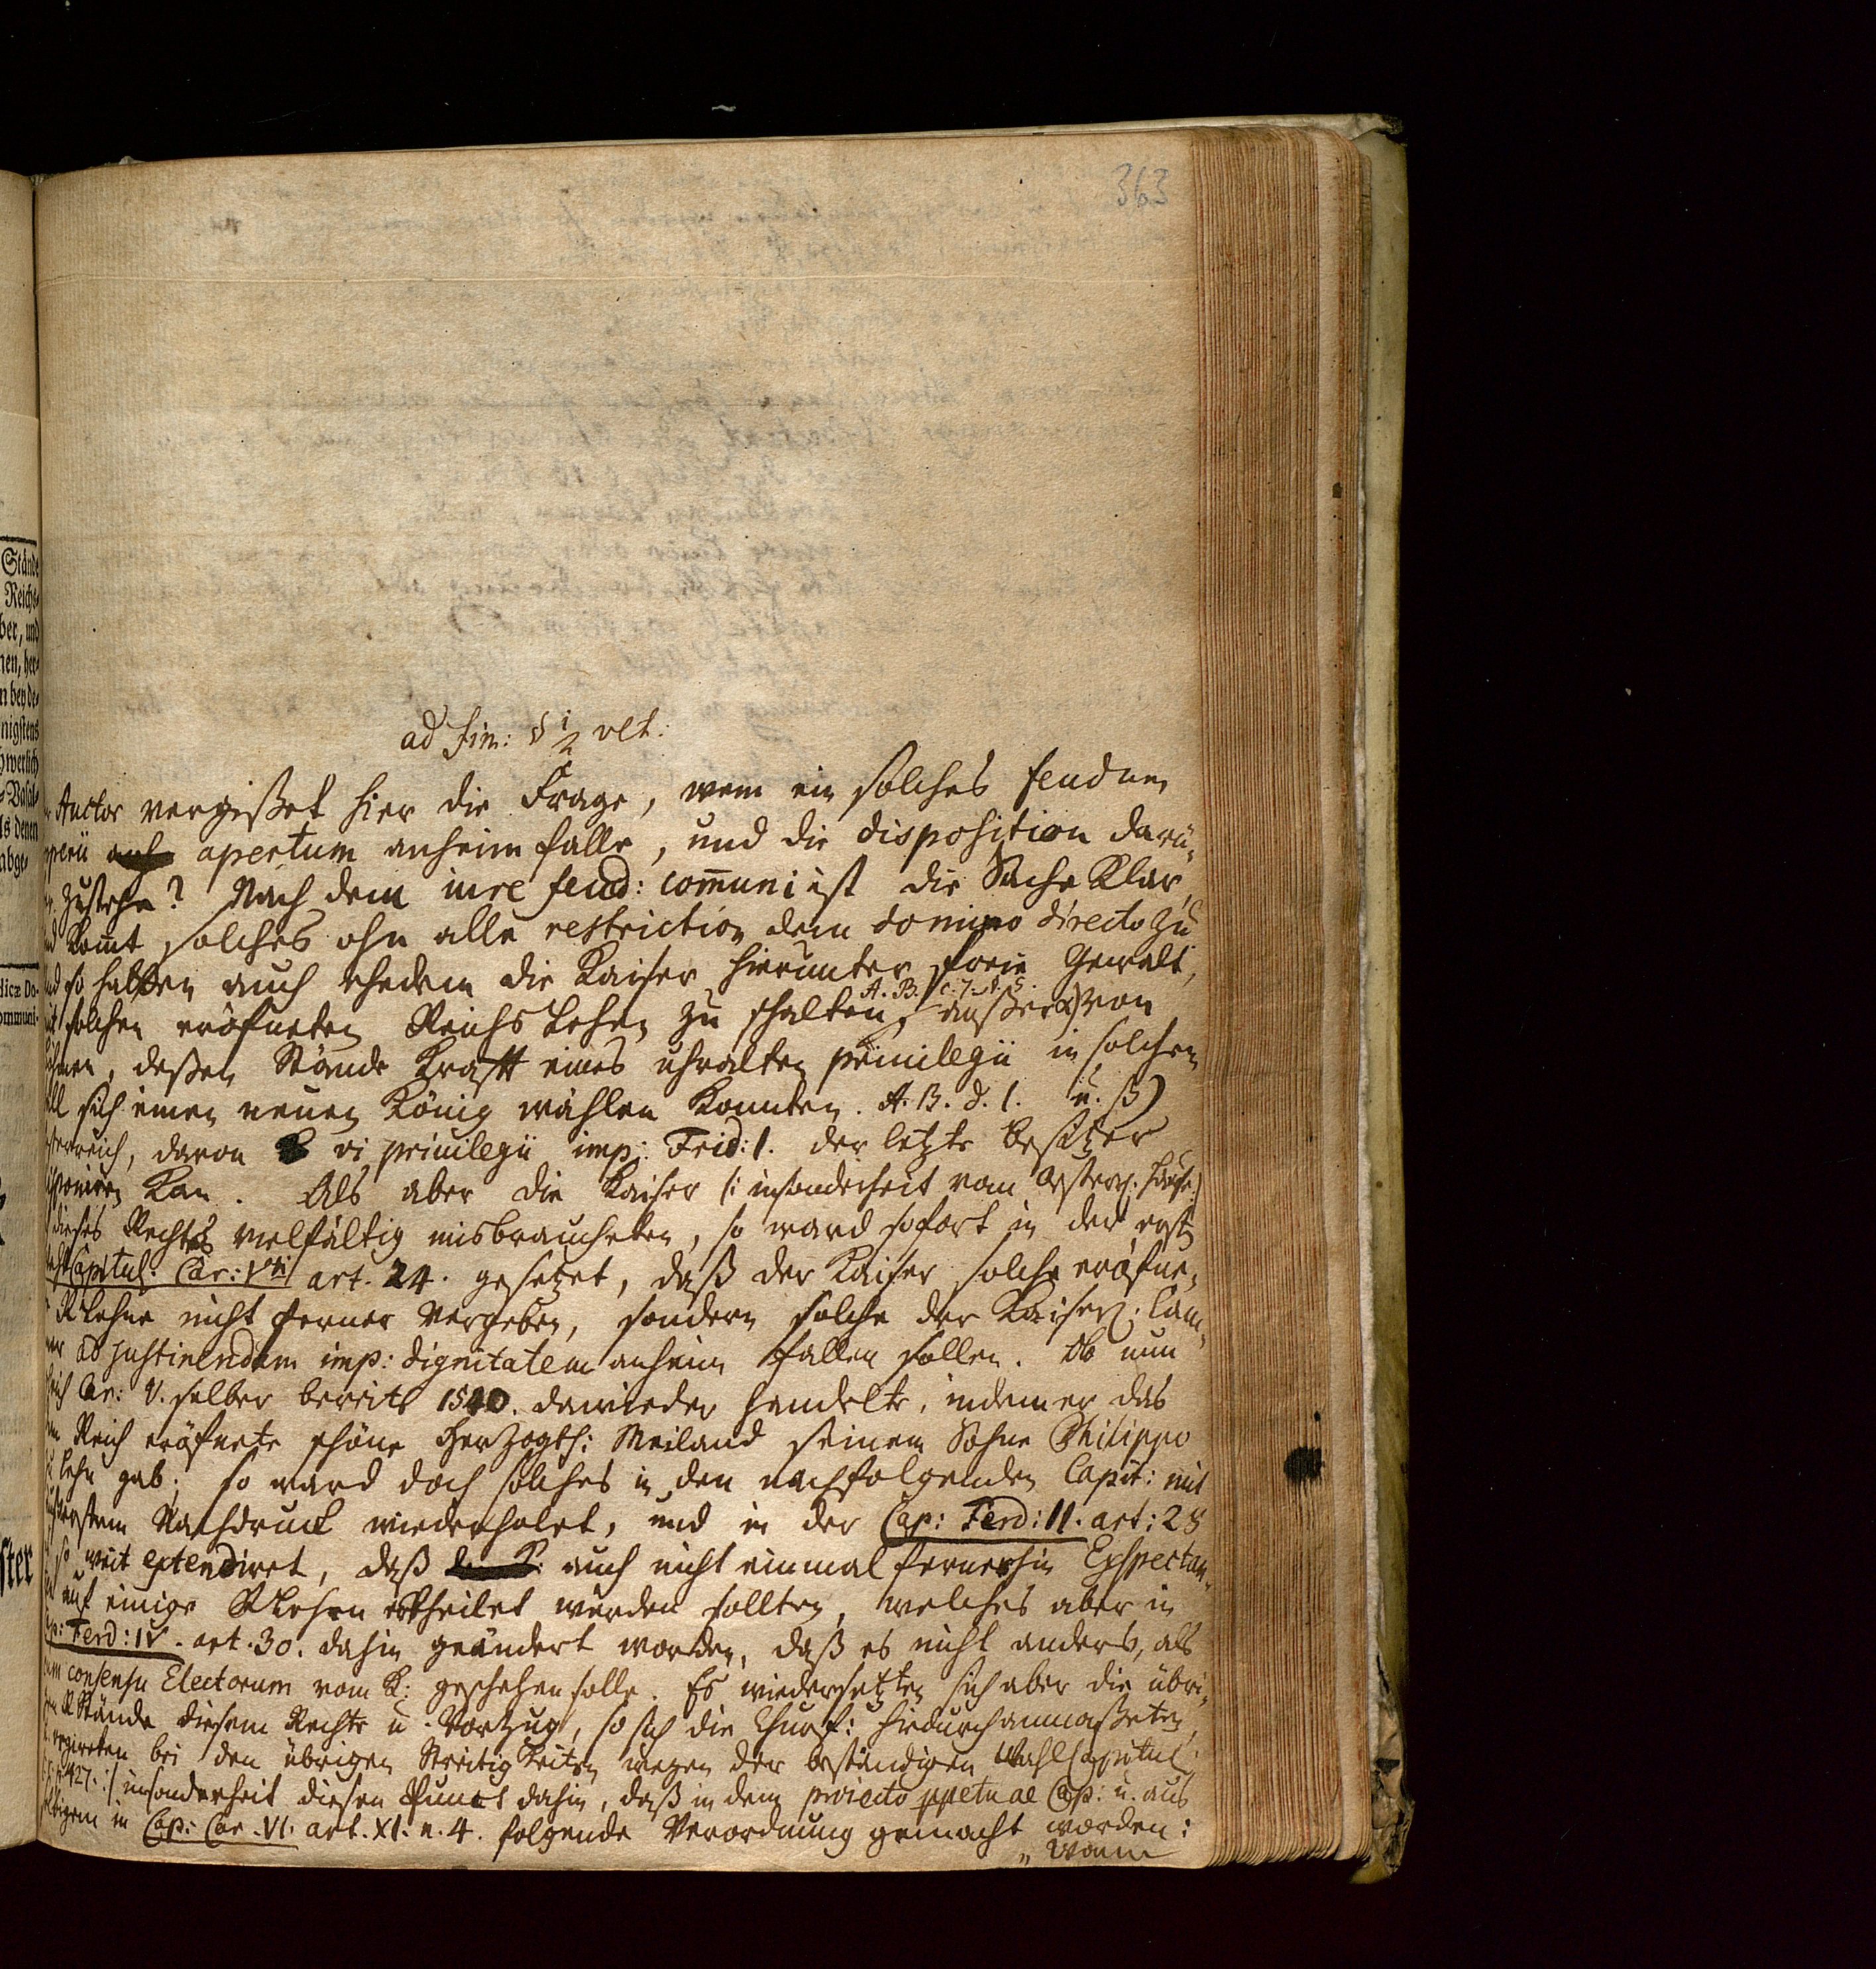 363
Stände
Reichs-
ber, und
nen, her-
n beyde-
nigstens
hwerlich
s-Vasal-
ls denen
abge-
dicæ Do-
ommuni-
ster
ad fin: § 1/2 vlt:
Auctor vergißet hier die Frage, wem ein solches feudum
mperii apertum anheim falle, und die disposition darü-
zustehe? Nach dem iure feud: com̅uni ist die Sache klar,
nd kom̅t solches ohn alle restriction dem domino directo zu
nd so hatten auch ehedem die Kaiser hierunter freie Gewalt,
A. B. c. 7. §. 5.
mit solchen eröfneten Reichs Lehen zu schalten, außer α) von
öhmen, deßen Stände Krafft eines uhralten priuilegii in solchen
all sich einen neuen König wählen konnten. A. B. d. l. u. β)
sterreich, davon vi priuilegii imp: Frid: I. der letzte Besitzer
isponiren kan. Als aber die Kaiser (: insonderheit vom Oesterr. Hause:)
dieses Rechts vielfältig misbraucheten, so ward sofort in der erst
Capitul: Car: Vti art. 24. gesetzet, daß der Kaiser solche eröfne-
RLehne nicht ferner vergeben, sondern solche der Kaiserl. Cam-
mer ad sustinendam imp: dignitatem anheim fallen sollen. Ob nun
gleich Car: V. selber bereits 1540. dawieder handelte, indem er das
dem Reich eröfnete schöne Herzogth: Meiland seinem Sohne Philippo
zu Lehn gab; so ward doch solches in den nachfolgenden Capit: mit
Nachdruck wiederholet, und in der Cap: Ferd: II. art: 28
so weit extendiret, daß auch nicht einmal fernerhin Exspectan-
auf einige RLehen ertheilet würden sollten, welches aber in
Cap: Ferd: IV. art. 30. dahin geändert worden, daß es nicht anders, als
cum consensu Electorum vom K: geschehen solle. Es wiedersetzten sich aber die übri-
gen RStände diesem Rechte u. Vorzug, so sich die Churf: hiedurch anmaßeten,
bei den übrigen Streitigkeiten wegen der beständigen WahlCapitul:
427. :/ insonderheit diesen Punct dahin, daß in dem proiecto ppetuae Cap: u. aus
selbigem in Cap: Car. VI. art. XI. n. 4. folgende Verordnung gemacht worden:
„ Wann